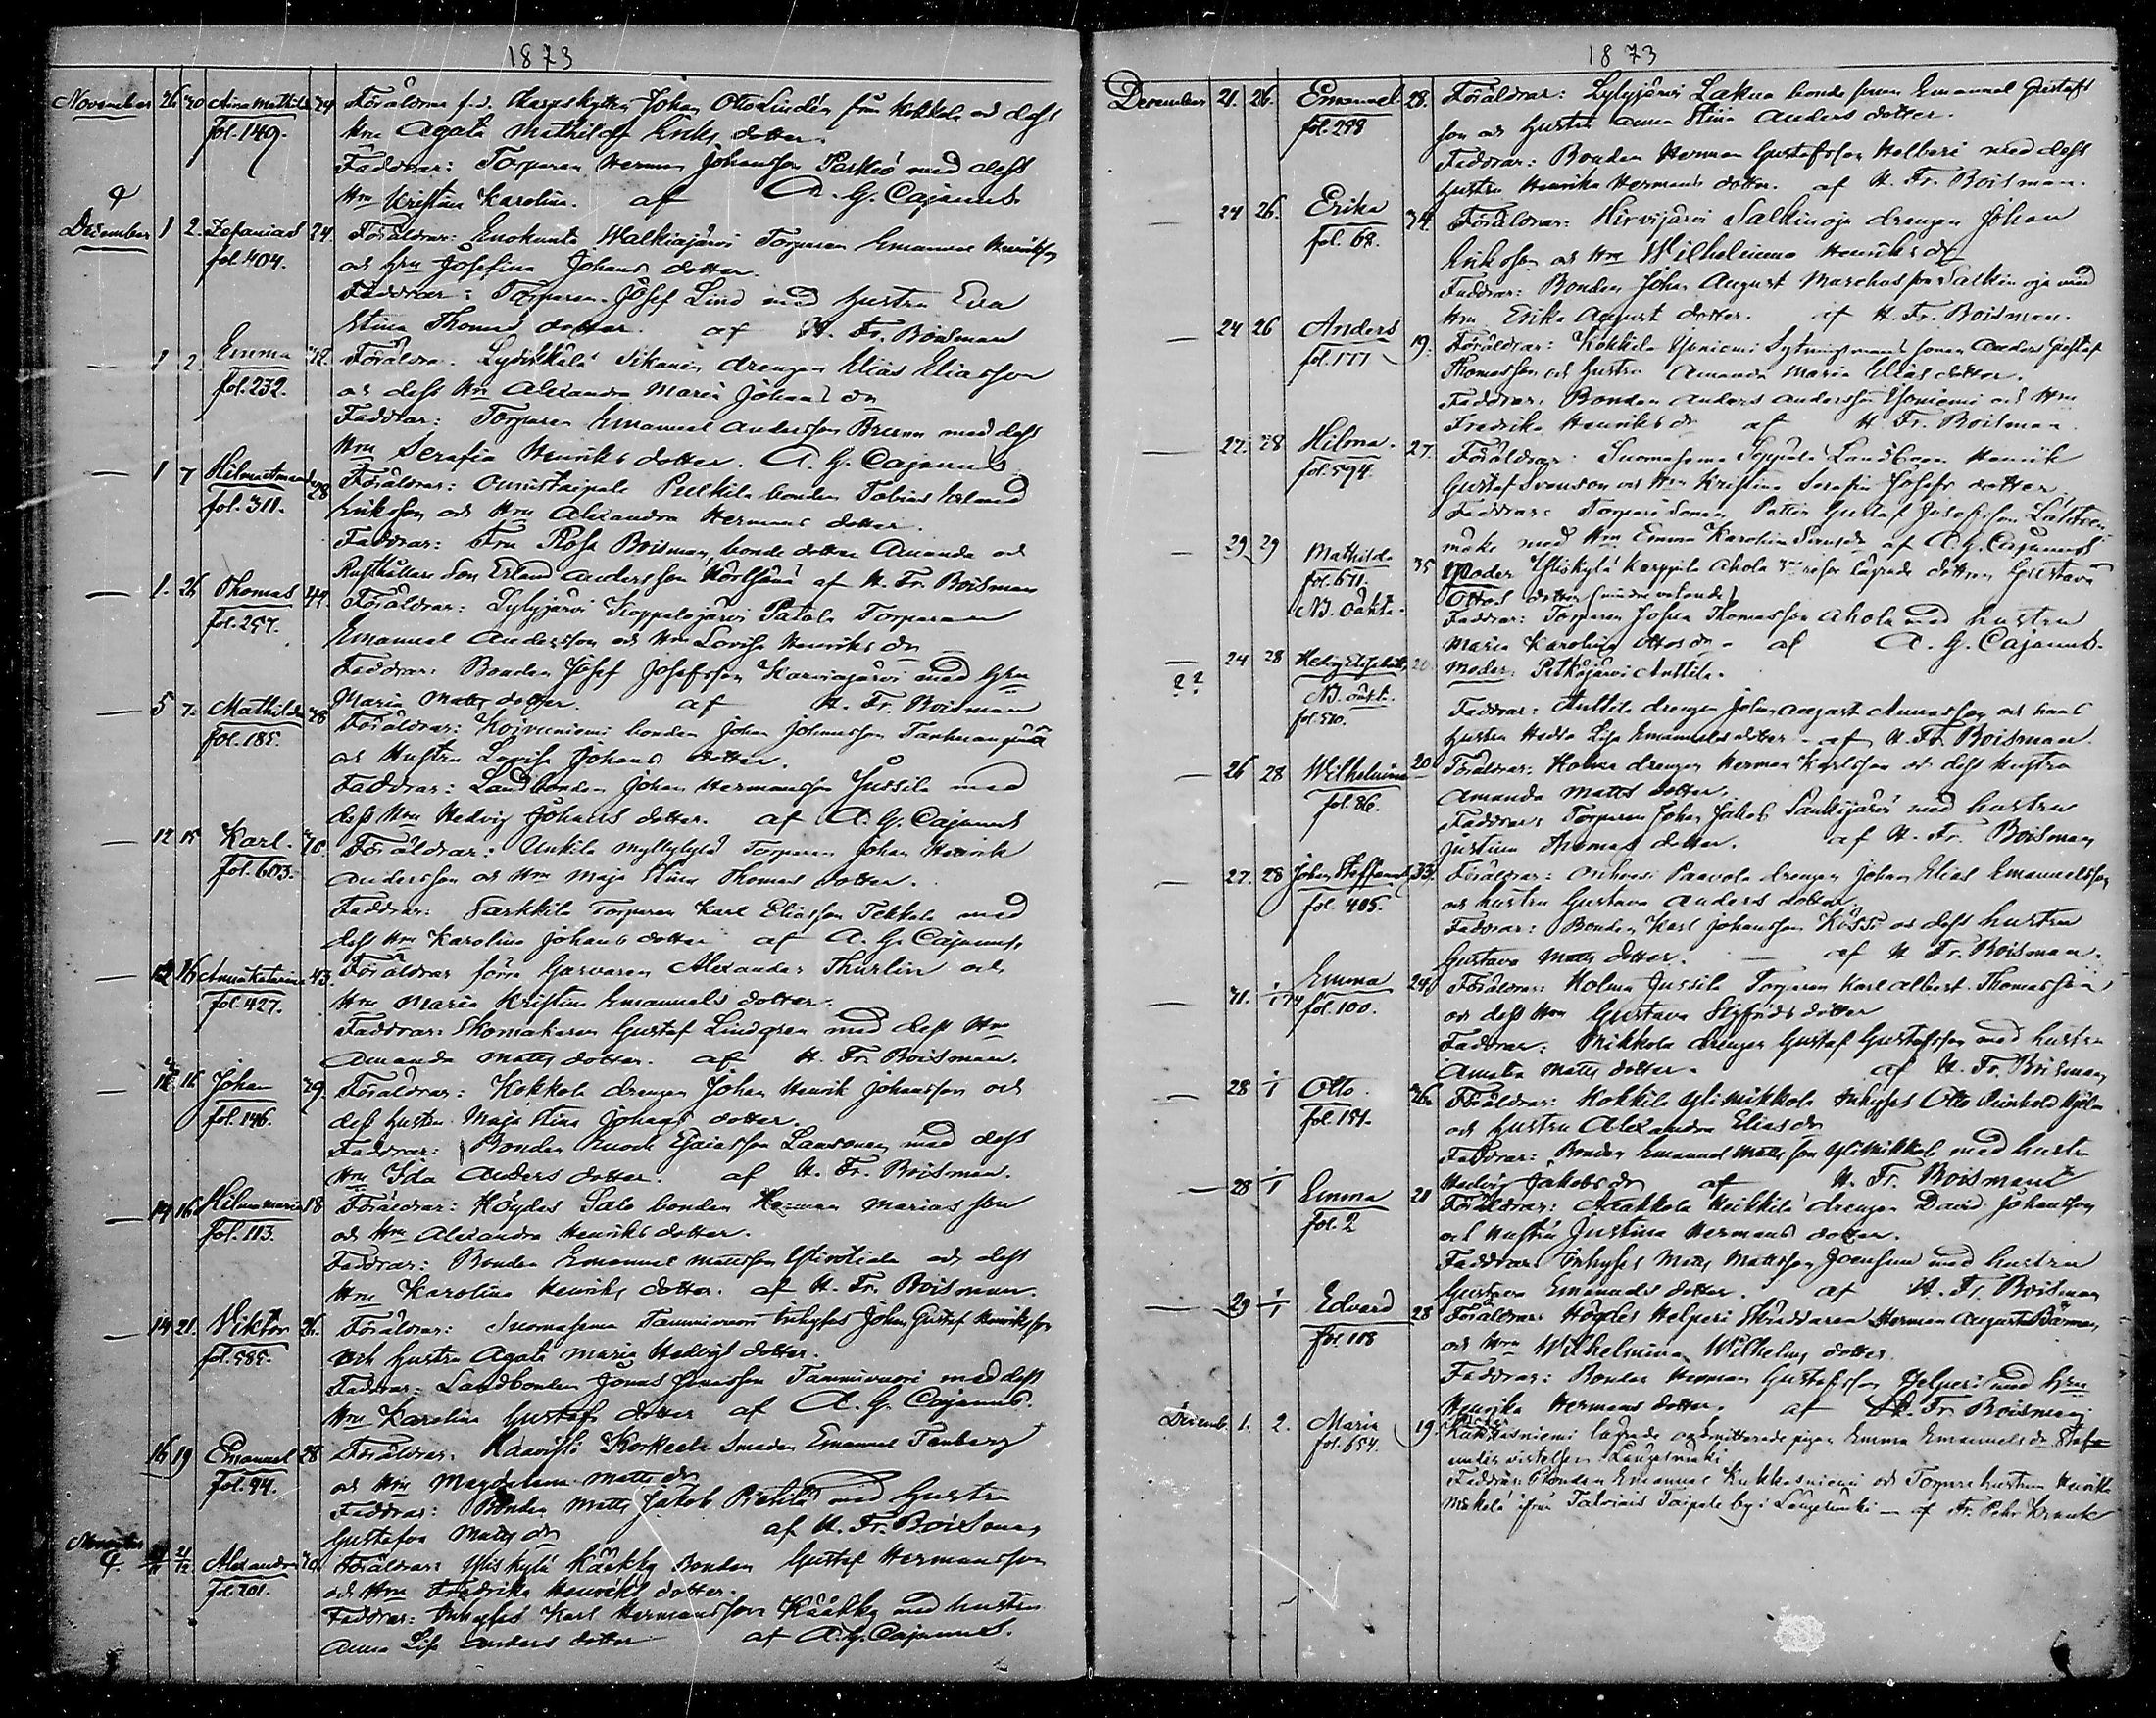 1873
November 26 30 Aina Mathilda 24 Föräldrar f.d. Skarpskytten Johan Otto Lindén från Kokkola och dess
fol. 149. Hru Agata Mathilda Eriks dotter.
Faddrar: Torparen Herman Johansson Perkiö med dess
Hru Kristina Karolina. af A. G. Cajanus
December 1 2. Zefanias 24 Föräldrar: Enokunta Walkiajärvi Torparen Emanuel Henriksson
fol. 404. och Hru Josefina Johans dotter.
Faddrar: Torparen Josef Lind med Hustru Eva
Stina Thomas dotter. af H. Fr. Boisman
— 1 2. Emma Föräldrar. Sikanen drengen Elias Eliasson
fol. 232. och dess Hru Alexandra Maria Johans dr
Faddrar: Torparen Emanuel Andersson med dess
Hru Serafia Henriks dotter. A. G. Cajanus
— 1 7 Hilma Amanda 28 Föräldrar: Onnistaipale Pulkkila bonden Tobias Erland
fol. 311. Eriksson och Hru Alexandra Hermans dotter.
Faddrar: Fru Rosa Boisman, bonde dottren Amanda och
Rusthållare Son Erland Andersson af H. Fr. Boisman
— 1. 26 Thomas 44 Föräldrar: Lylyjärvi Koppelojärvi Patala Torparen
fol. 257. Emanuel Andersson och Hru Lovisa Henriks dr
Faddrar: Bonden Josef Josefsson Karviajärvi med Hru
Maria Matts dotter. af H. Fr. Boisman
— 5 7. Mathilda 28 Föräldrar: Koivuniemi bonden Johan Johansson
fol. 185. och Hustru Lovisa Johans dotter.
Faddrar: Landbonden Johan Hermansson Jussila med
dess Hru Hedvig Johans dotter. af A. G. Cajanus
— 12 15 Karl. 40. Föräldrar: Unkila Myllykylä Torparen Johan Henrik
fol. 603. Andersson och Hru Maja Stina Thomas dotter.
Faddrar: Sarkkila Torparen Karl Eliasson Tekkala med
dess Hru Karolina Johans dotter af A. G. Cajanus
— 12 16 Anna Katarina 43. Föräldrar förra Garvaren Alexander Thurlin och
fol. 427. Hru Maria Kristina Emanuels dotter.
Faddrar: Skomakaren Gustaf Lindgren med dess Hru
Amanda Matts dotter. af H. Fr. Boisman.
— 12 16 Johan 29. Föräldrar: Kokkola drengen Johan Henrik Johansson och
fol. 146. dess Hustru Maja Stina Johans dotter.
Faddrar: Bonden Enock Esaiasson Lansonen med dess
Hru Ida Anders dotter. af H. Fr. Boisman.
— 14 16 Hilma Maria 18 Föräldrar: Höydes Salo bonden Herman Mariasson
fol. 113. och Hru Alexandra Henriks dotter.
Faddrar: Bonden Emanuel Mattsson och dess
Hru Karolina Henriks dotter. af H. Fr. Boisman.
— 14 21. Viktor 26. Föräldrar: Suomasema Tammivuori Inhyses Johan Gustaf Henriksson
fol. 585. och Hustru Agata Maria Hedvigs dotter.
Faddrar: Landbonden Jonas Jonasson Tammivuori med dess
Hru Karolina Gustafs dotter af A. G. Cajanus.
16 19 Emanuel 28 Föräldrar. Kaavisto Korkeela Smeden Emanuel Tenberg
fol. 94. och Hru Magdalena Matts dr
Faddrar: Bonden Matts Jakob Pietilä med Hustru
Gustafva Matts dr af H. Fr. Boisman
November Alexandra 40. Föräldrar: Yliskylä Kääkky Bonden Gustaf Hermansson
fol. 701. och Hru Fredrika Henriks dotter.
Faddrar: Inhyses Karl Hermansson Kääkky med hustru
Anna Lisa Anders dotter af A. G. Cajanus.
1873
December 21. 26. Emanuel 28. Föräldrar: Lylyjärvi Lakua bonde sonen Emanuel Gustafs
fol. 298 son och Hustru Anna Stina Anders dotter.
Faddrar: Bonden Herman Gustafsson Helberi med dess
hustru Henrika Hermans dotter. af H. Fr. Boisman.
— 24 26. Erika 34. Föräldrar: Hirvijärvi Salkinoja drengen Johan
fol. 68. Eriksson och Hru Wilhelmina Henriks dr
Faddrar: Bonden Johan August Marckusson Salkinoja med
Hru Erika August dotter. af H. Fr. Boisman.
— 24 26 Anders 19. Föräldrar: Kokkila Yliniemi Sytningsmans sonen Anders Gustaf
fol. 177 Thomasson och Hustru Amanda Maria Elias dotter.
Faddrar: Bonden Anders Andersson Yliniemi och Hru
Fredrika Henriks dr af H. Fr. Boisman.
— 22. 28 Hilma. 27. Föräldrar: Suomasema Seppälä Landbonden Henrik
fol. 594. Gustaf Svenson och Hru Kristina Serafia Josefs dotter
Faddrar: Torpare Sonen Petter Gustaf Josefsson
med Hru Emma Karolina Svensdr af A. G. Cajanus
— 29 29 Mathilda 35 Moder Yliskylä Karppila Ahola lägrade dottren Gustava
fol. 671. Ottos dotter (mindre vetande)
NB. Oäkta. Faddrar: Torparen Josua Thomasson Ahola med hustru
Maria Karolina Ottos dr af A. G. Cajanus.
— 24 28 Hedvig Elisabeth 20. Moder. Pitkäjärvi Anttila.
?? NB. oäkta. Faddrar: Anttila drengen Johan August Annasson och hans
fol. 510. Hustru Hedda Lisa Emanuels dotter - af H. Fr. Boisman.
— 26 28 Wilhelmina 20 Föräldrar. Holma drengen Herman Karlsson och dess hustru
fol. 86. Amanda Matts dotter.
Faddrar: Torparen Johan Jakob med hustru
Justina Thomas dotter. af H. Fr. Boisman
— 27. 28 Johan Steffanus 33. Föräldrar: Orihvesi Paavola drengen Johan Elias Emanuelsson
fol. 405. och hustru Gustava Anders dotter
Faddrar: Bonden Karl Johansson Kössi och dess hustru
Gustava Matts dotter. — af H. Fr. Boisman.
— 31. 1/1 74 Emma 24 Föräldrar: Holma Jussila Torparen Karl Albert Thomasson
fol. 100. och dess Hru Gustava Sigfrids dotter
Faddrar: Mikkola drengen Gustaf Gustafsson med hustru
Amalia Matts dotter. af H. Fr. Boisman
— 28 1/1 Otto. 26. Föräldrar: Kokkila Ylimikkola Inhyses Otto Reinhold
fol. 151. och Hustru Alexandra Elias dr
Faddrar: Bonden Emanuel Mattsson Ylimikkola med hustru
Hedvig Jakobs dr af H. Fr. Boisman
— 28 1/1 Emma 21 Föräldrar: Aakkola Heikkilä drengen David Johansson
fol. 2 och Hustru Justina Hermans dotter.
Faddrar Inhyses Matts Mattsson Joensuu med hustru
Gustava Emanuels dotter. af H. Fr. Boisman
— 29 1/1 Edvard 28 Föräldrar: Höydes Helperi Skräddaren Herman August
fol. 118 och Hru Wilhelmina Wilhelms dotter
Faddrar: Bonden Herman Gustafsson Helperi med Hru
Henrika Hermans dotter. af H. Fr. Boisman
Decemb. 1. 2. Maria 19. Kukkasniemi lägrade oadmitterade pigan Emma Emanuels dr
fol. 654. under vistelsen i Längelmäki
Faddrar: Bonden Emanuel Kukkasniemi och Torpare hustrun Henrika
Mäkelä ifrån Talviais Taipale by i Längelmäki — af Fr. Pehr Kranck